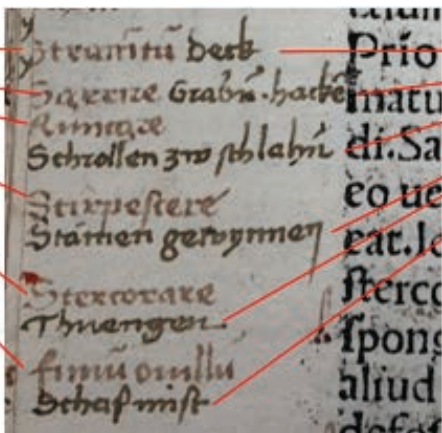 Stramı̄tū deck
Sarrire Grabn̄. hackē
Runcare
Schrollen zw schlahn̄
Stirpescere
Stamen gewynnen
Stercorare
Thuengen
fimū ouillū
Schaf mist
Prio
matu
di.Sa
eo ue
eat.
ſterco
ſpong
aliud